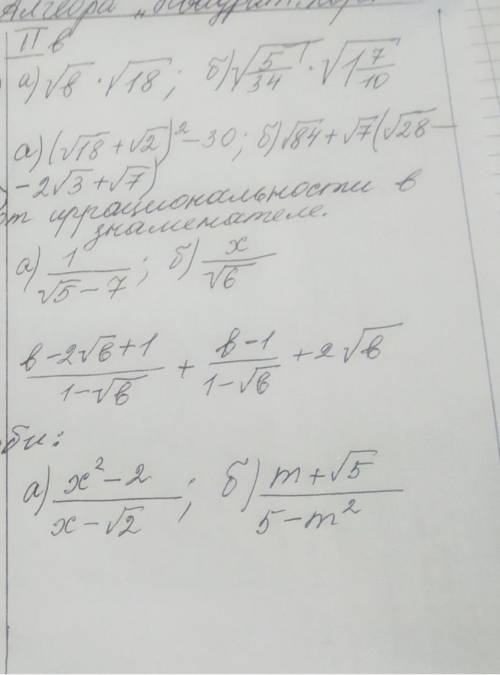 Алгебра „
II в
а) √8 · √18 ; б) √(5/34) · √(1 7/10)
а) (√18 + √2)² − 30 ; б) √84 + √7 (√28 −
− 2√3 + √7)
от иррациональности в
знаменателе.
а) 1/(√5 − 7) ; б) x/√6
(в − 2√в + 1)/(1 − √в) + (в − 1)/(1 − √в) + 2√в
би:
а) (x² − 2)/(x − √2) ; б) (m + √5)/(5 − m²)